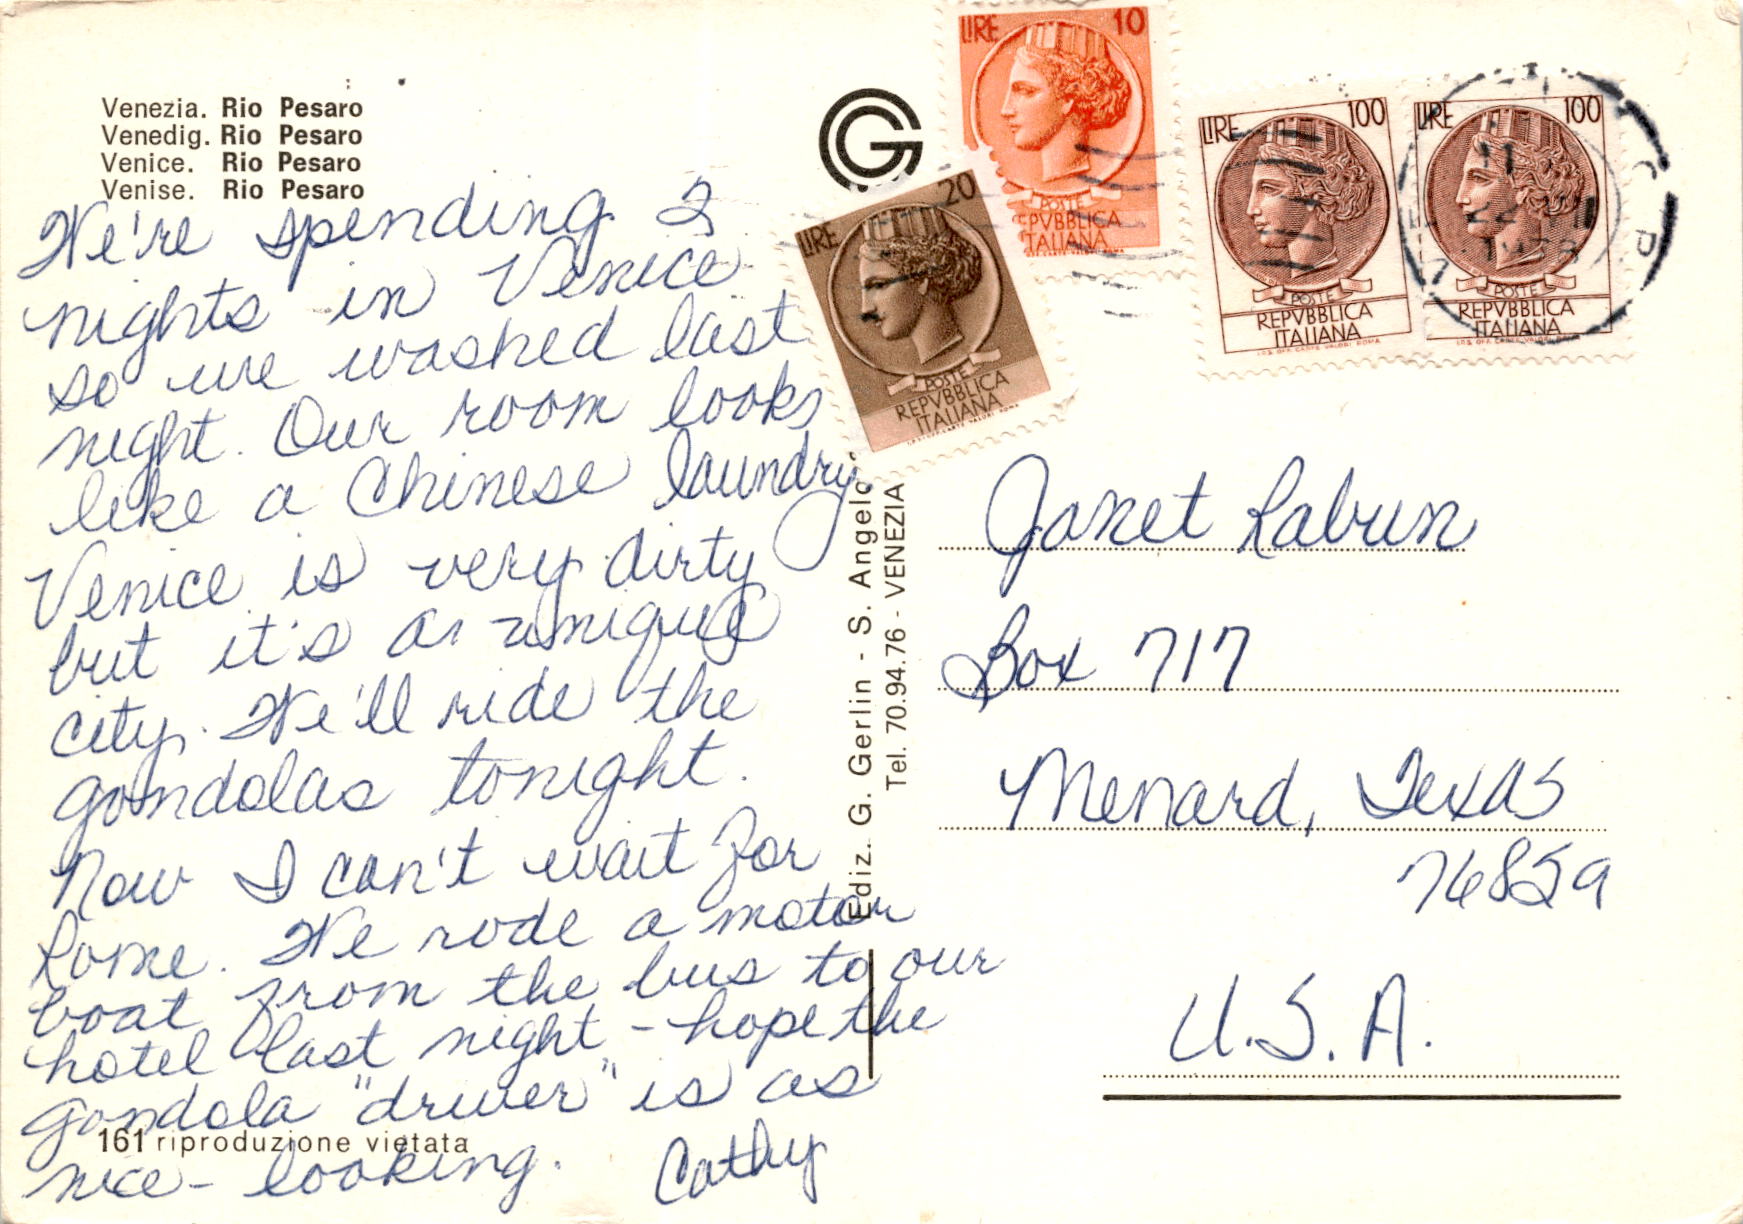 Venezia. Rio Pesaro
Venedig. Rio Pesaro
Venice. Rio Pesaro
Venise. Rio Pesaro
We're spending 2
nights in Venice
so we washed last
night. Our room looks
like a Chinese laundry.
Venice is very dirty
but it's a unique
city. We'll ride the
gondolas tonight.
Now I can't wait for
Rome. We rode a motor
boat from the bus to our
hotel last night - hope the
gondola "driver" is as
nice-looking. Cathy
161 riproduzione vietata
Ediz. G. Gerlin - S. Angelo
Tel. 70.94.76 - VENEZIA
G
LIRE 10
POSTE
REPVBBLICA
ITALIANA
LIRE 20
POSTE
REPVBBLICA
ITALIANA
LIRE 100
POSTE
REPVBBLICA
ITALIANA
LIRE 100
POSTE
REPVBBLICA
ITALIANA
Janet Rabun
Box 717
Menard, Texas
76859
U.S.A.